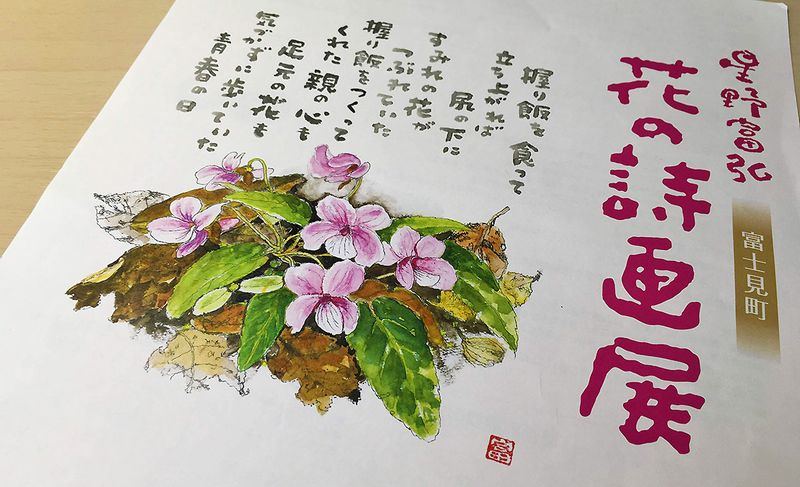 星野富弘
花の詩画展
富士見町
握り飯を食って
立ち上がれば
尻の下に
すみれの花が
つぶれていた
握り飯をつくって
くれた親の心も
足元の花も
気づかずに歩いていた
青春の日
富